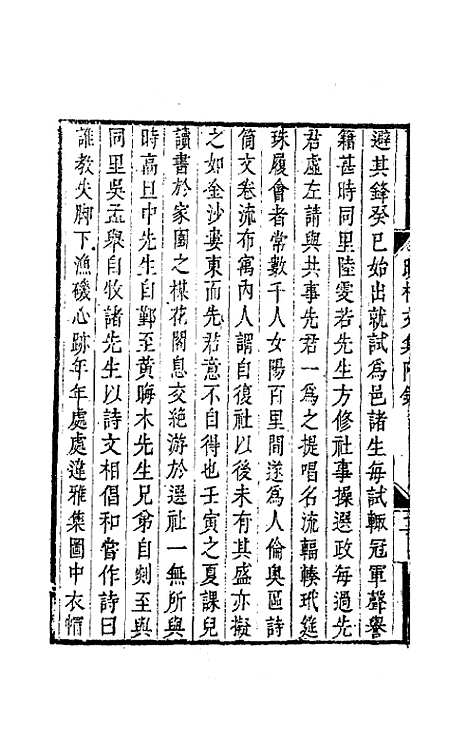 避其鋒癸巳始出就試爲邑諸生每試輒冠軍聲譽
籍甚時同里陸雯若先生方修社事操選政每過先
君虛左請與共事先君一爲之提唱名流輻輳玳筵
珠履會者常數千人女陽百里間遂爲人倫奧區詩
筒文卷流布寓內人謂自復社以後未有其盛亦擬
之如金沙婁東而先君意不自得也壬寅之夏課兒
讀書於家園之楳花閣息交絕游於選社一無所與
時高旦中先生自鄞至黃晦木先生兄弟自剡至與
同里吳孟舉自牧諸先生以詩文相倡和嘗作詩曰
誰教失脚下漁磯心跡年年處處違雅集圖中衣帽
晚村文集附錄